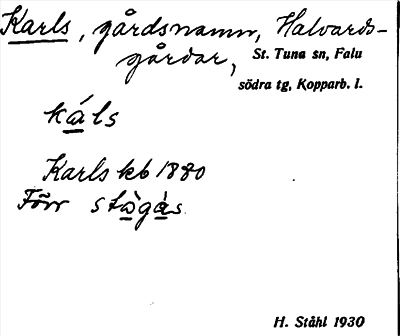 Karls, gårdsnamn, Halvards-
gårdar,
St. Tuna sn, Falu
södra tg, Kopparb. l.
káls
Karls kb 1880
Förr stàgàs.
H. Ståhl 1930